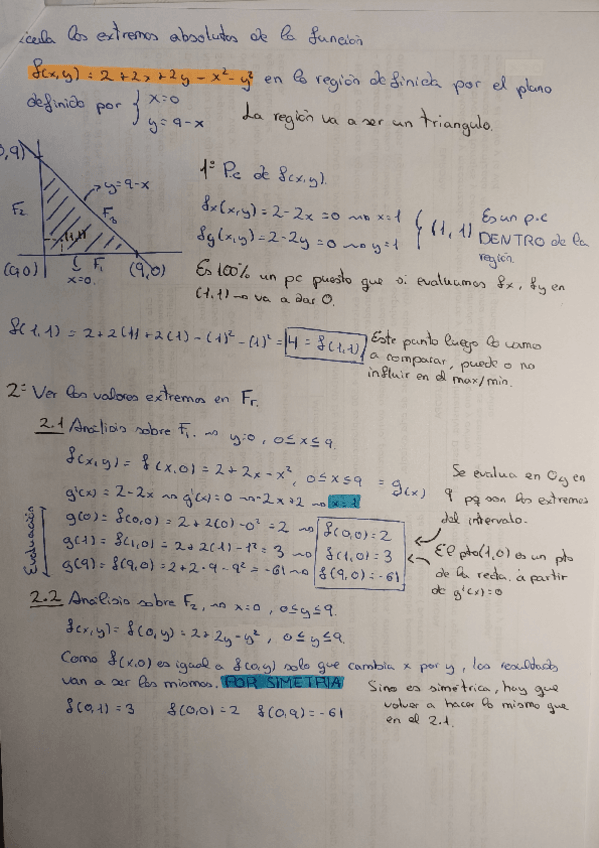 los extremos absolutos de la función
f(x,y) = 2+2x+2y-x²-y² en la región definida por el plano
definido por { x=0
y=9-x
La región va a ser un triangulo.
,9)
y=9-x
F₂
F₃
(1,1)
(0,0)
F₁
(9,0)
x=0.
1º Pc de f(x,y).
fx(x,y) = 2-2x=0 → x=1
fy(x,y) = 2-2y=0 → y=1
(1,1) Es un p.c
DENTRO de la
región.
Es 100% un pc puesto que si evaluamos fx, fy en
(1,1) → va a dar 0.
f(1,1) = 2+2(1)+2(1)-(1)²-(1)² = 4 = f(1,1)
Este punto luego lo vamos
a comparar, puede o no
influir en el max/min.
2º Ver los valores extremos en Fr.
2.1 Análisis sobre F₁ → y=0, 0≤x≤9.
f(x,y) = f(x,0) = 2+2x-x², 0≤x≤9 = g(x)
g'(x) = 2-2x → g'(x)=0 → -2x+2 → x=1
Evaluación
g(0) = f(0,0) = 2+2(0)-0² = 2 → f(0,0)=2
g(1) = f(1,0) = 2+2(1)-1² = 3 → f(1,0)=3
g(9) = f(9,0) = 2+2·9-9² = -61 → f(9,0)=-61
Se evalua en 0 y en
9 pq son los extremos
del intervalo.
El pto(1,0) es un pto
de la recta. a partir
de g'(x)=0
2.2 Análisis sobre F₂, → x=0, 0≤y≤9.
f(x,y) = f(0,y) = 2+2y-y², 0≤y≤9.
Como f(x,0) es igual a f(0,y) solo que cambia x por y, los resultados
van a ser los mismos. POR SIMETRIA
f(0,1)=3 f(0,0)=2 f(0,9)=-61
Sino es simétrica, hay que
volver a hacer lo mismo que
en el 2.1.